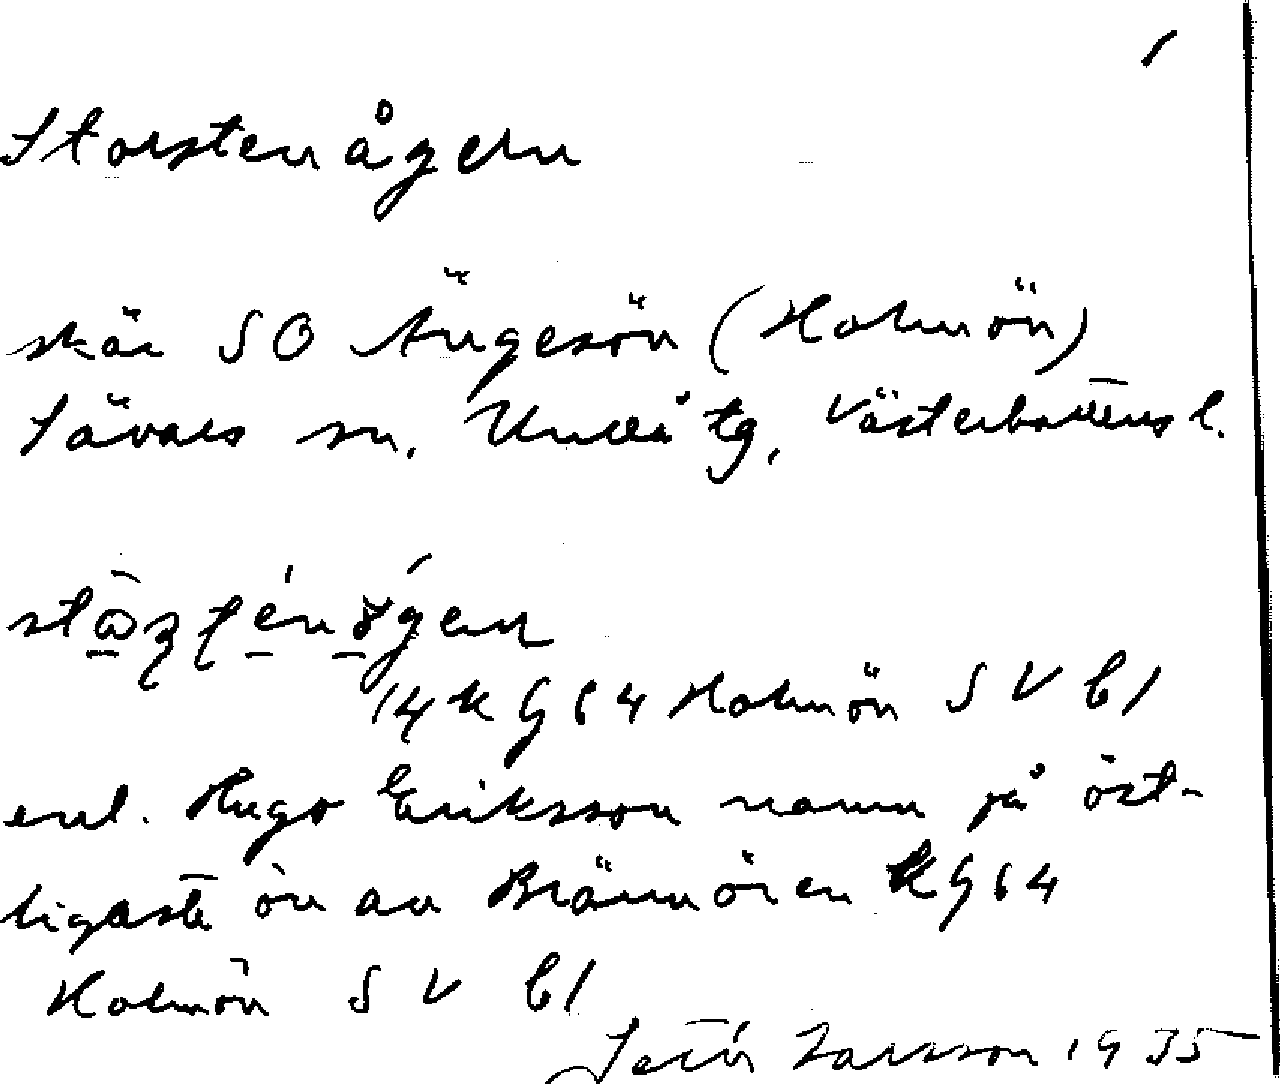 Storstenågern
skär SO Ängesön (Holmön)
Sävars sn. Umeå tg. Västerbottens l.
14 KG64 Holmön SV bl
enl. Hugo Eriksson namn på öst-
ligaste ön av Brännören KG64
Holmön SV bl
Larsson 1935